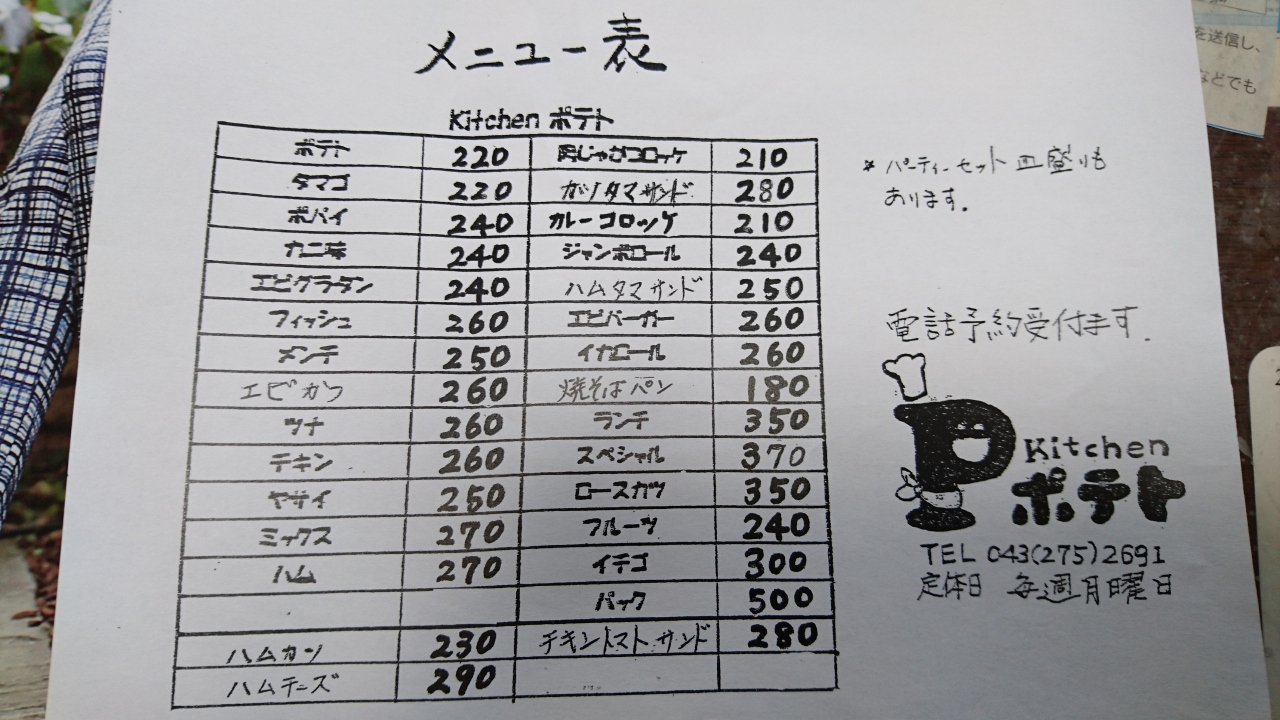 を送信し、
などでも
メニュー表
Kitchen ポテト
ポテト 220 肉じゃがコロッケ 210
タマゴ 220 カツタマサンド 280
ポパイ 240 カレーコロッケ 210
カニ味 240 ジャンボロール 240
エビグラタン 240 ハムタマサンド 250
フィッシュ 260 エビバーガー 260
メンチ 250 イカロール 260
エビカツ 260 焼そばパン 180
ツナ 260 ランチ 350
チキン 260 スペシャル 370
ヤサイ 250 ロースカツ 350
ミックス 270 フルーツ 240
ハム 270 イチゴ 300
パック 500
ハムカツ 230 チキントマトサンド 280
ハムチーズ 290
* パーティーセット皿盛りも
あります。
電話予約受付ます.
Kitchen
ポテト
TEL 043(275)2691
定休日 毎週月曜日